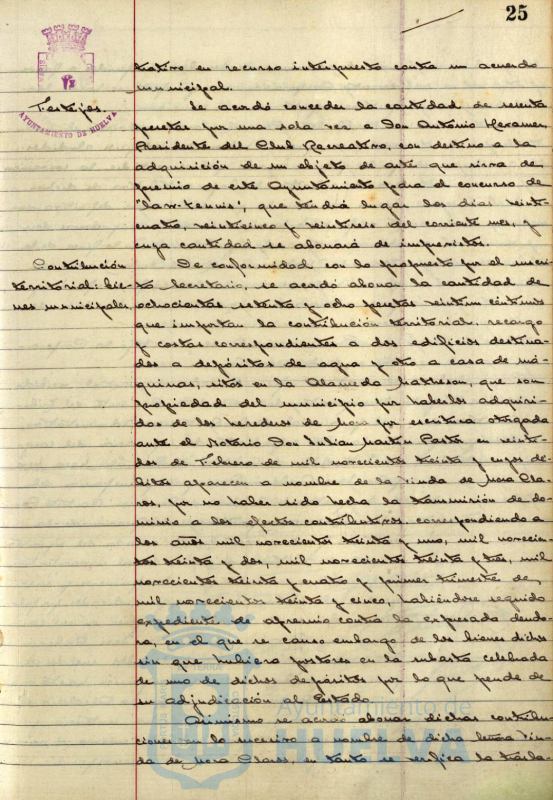 25
trativo en recurso interpuesto contra un acuerdo
municipal.
Festejos.
AYUNTAMIENTO DE HUELVA
Se acordó conceder la cantidad de sesenta
pesetas por una sola vez a Don Antonio
Presidente del Club Recreativo, con destino a la
adquisición de un objeto de arte que sirva de
premio de este Ayuntamiento para el concurso de
"law-tennis", que tendrá lugar los días veinti-
cuatro, veinticinco y veintiseis del corriente mes, y
cuya cantidad se abonará de imprevistos.
Contribución
territorial: bie-
nes municipales.
De conformidad con lo propuesto por el infrascri-
to Secretario, se acordó abonar la cantidad de
ochocientas setenta y ocho pesetas veintiun céntimos
que importan la contribución territorial, recargo
y costas correspondientes a dos edificios destina-
dos a depósitos de agua y otro a casa de má-
quinas, sitos en la Alameda Matheson, que son
propiedad del municipio por haberlos adquiri-
dos de los herederos de Mora por escritura otorgada
ante el Notario Don Julian Martin Pastor en veinti-
dos de Febrero de mil novecientos treinta y cuyos dé-
bitos aparecen a nombre de la Viuda de Mora Cla-
ros, por no haber sido hecha la transmisión de do-
minio a los efectos contributivos, correspondiendo a
los años mil novecientos treinta y uno, mil novecien-
tos treinta y dos, mil novecientos treinta y tres, mil
novecientos treinta y cuatro y primer trimestre de
mil novecientos treinta y cinco, habiéndose seguido
expediente de apremio contra la expresada deudo-
ra, en el que se causó embargo de los bienes dichos
sin que hubiera postores en la subasta celebrada
de uno de dichos depósitos por lo que pende de
su adjudicación al Estado.
Asimismo se acordó abonar dichas contribu-
ciones en lo sucesivo a nombre de dicha señora Viu-
da de Mora Claros, en tanto se verifica la trasla-
Ayuntamiento de
HUELVA